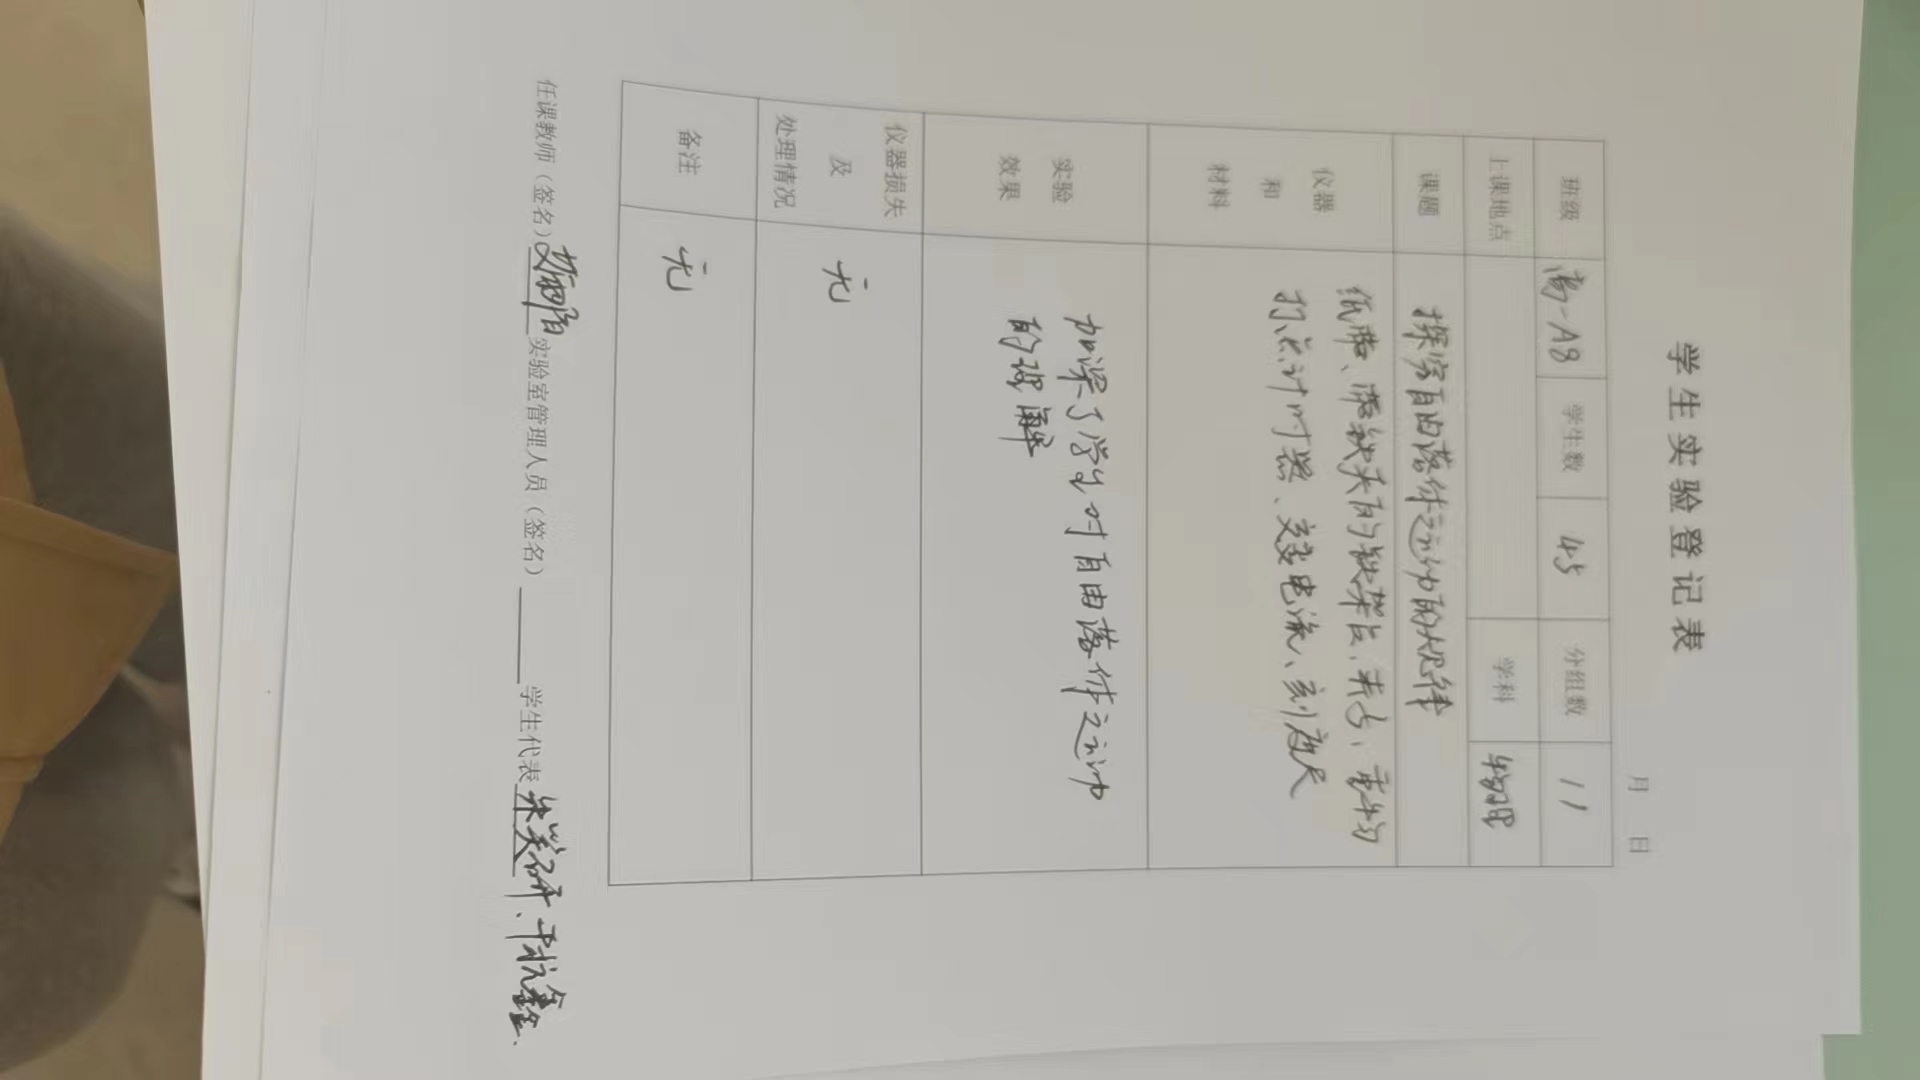 学生实验登记表
月 日
班级 高一A8 学生数 45 分组数 11
上课地点 学科 物理
课题 探究自由落体运动的规律
仪器和材料 纸带、带铁夹的铁架台、夹子、重物
打点计时器、交变电流、刻度尺
实验效果 加深了学生对自由落体运动
的理解
仪器损失及处理情况 无
备注 无
任课教师（签名） 实验室管理人员（签名） 学生代表